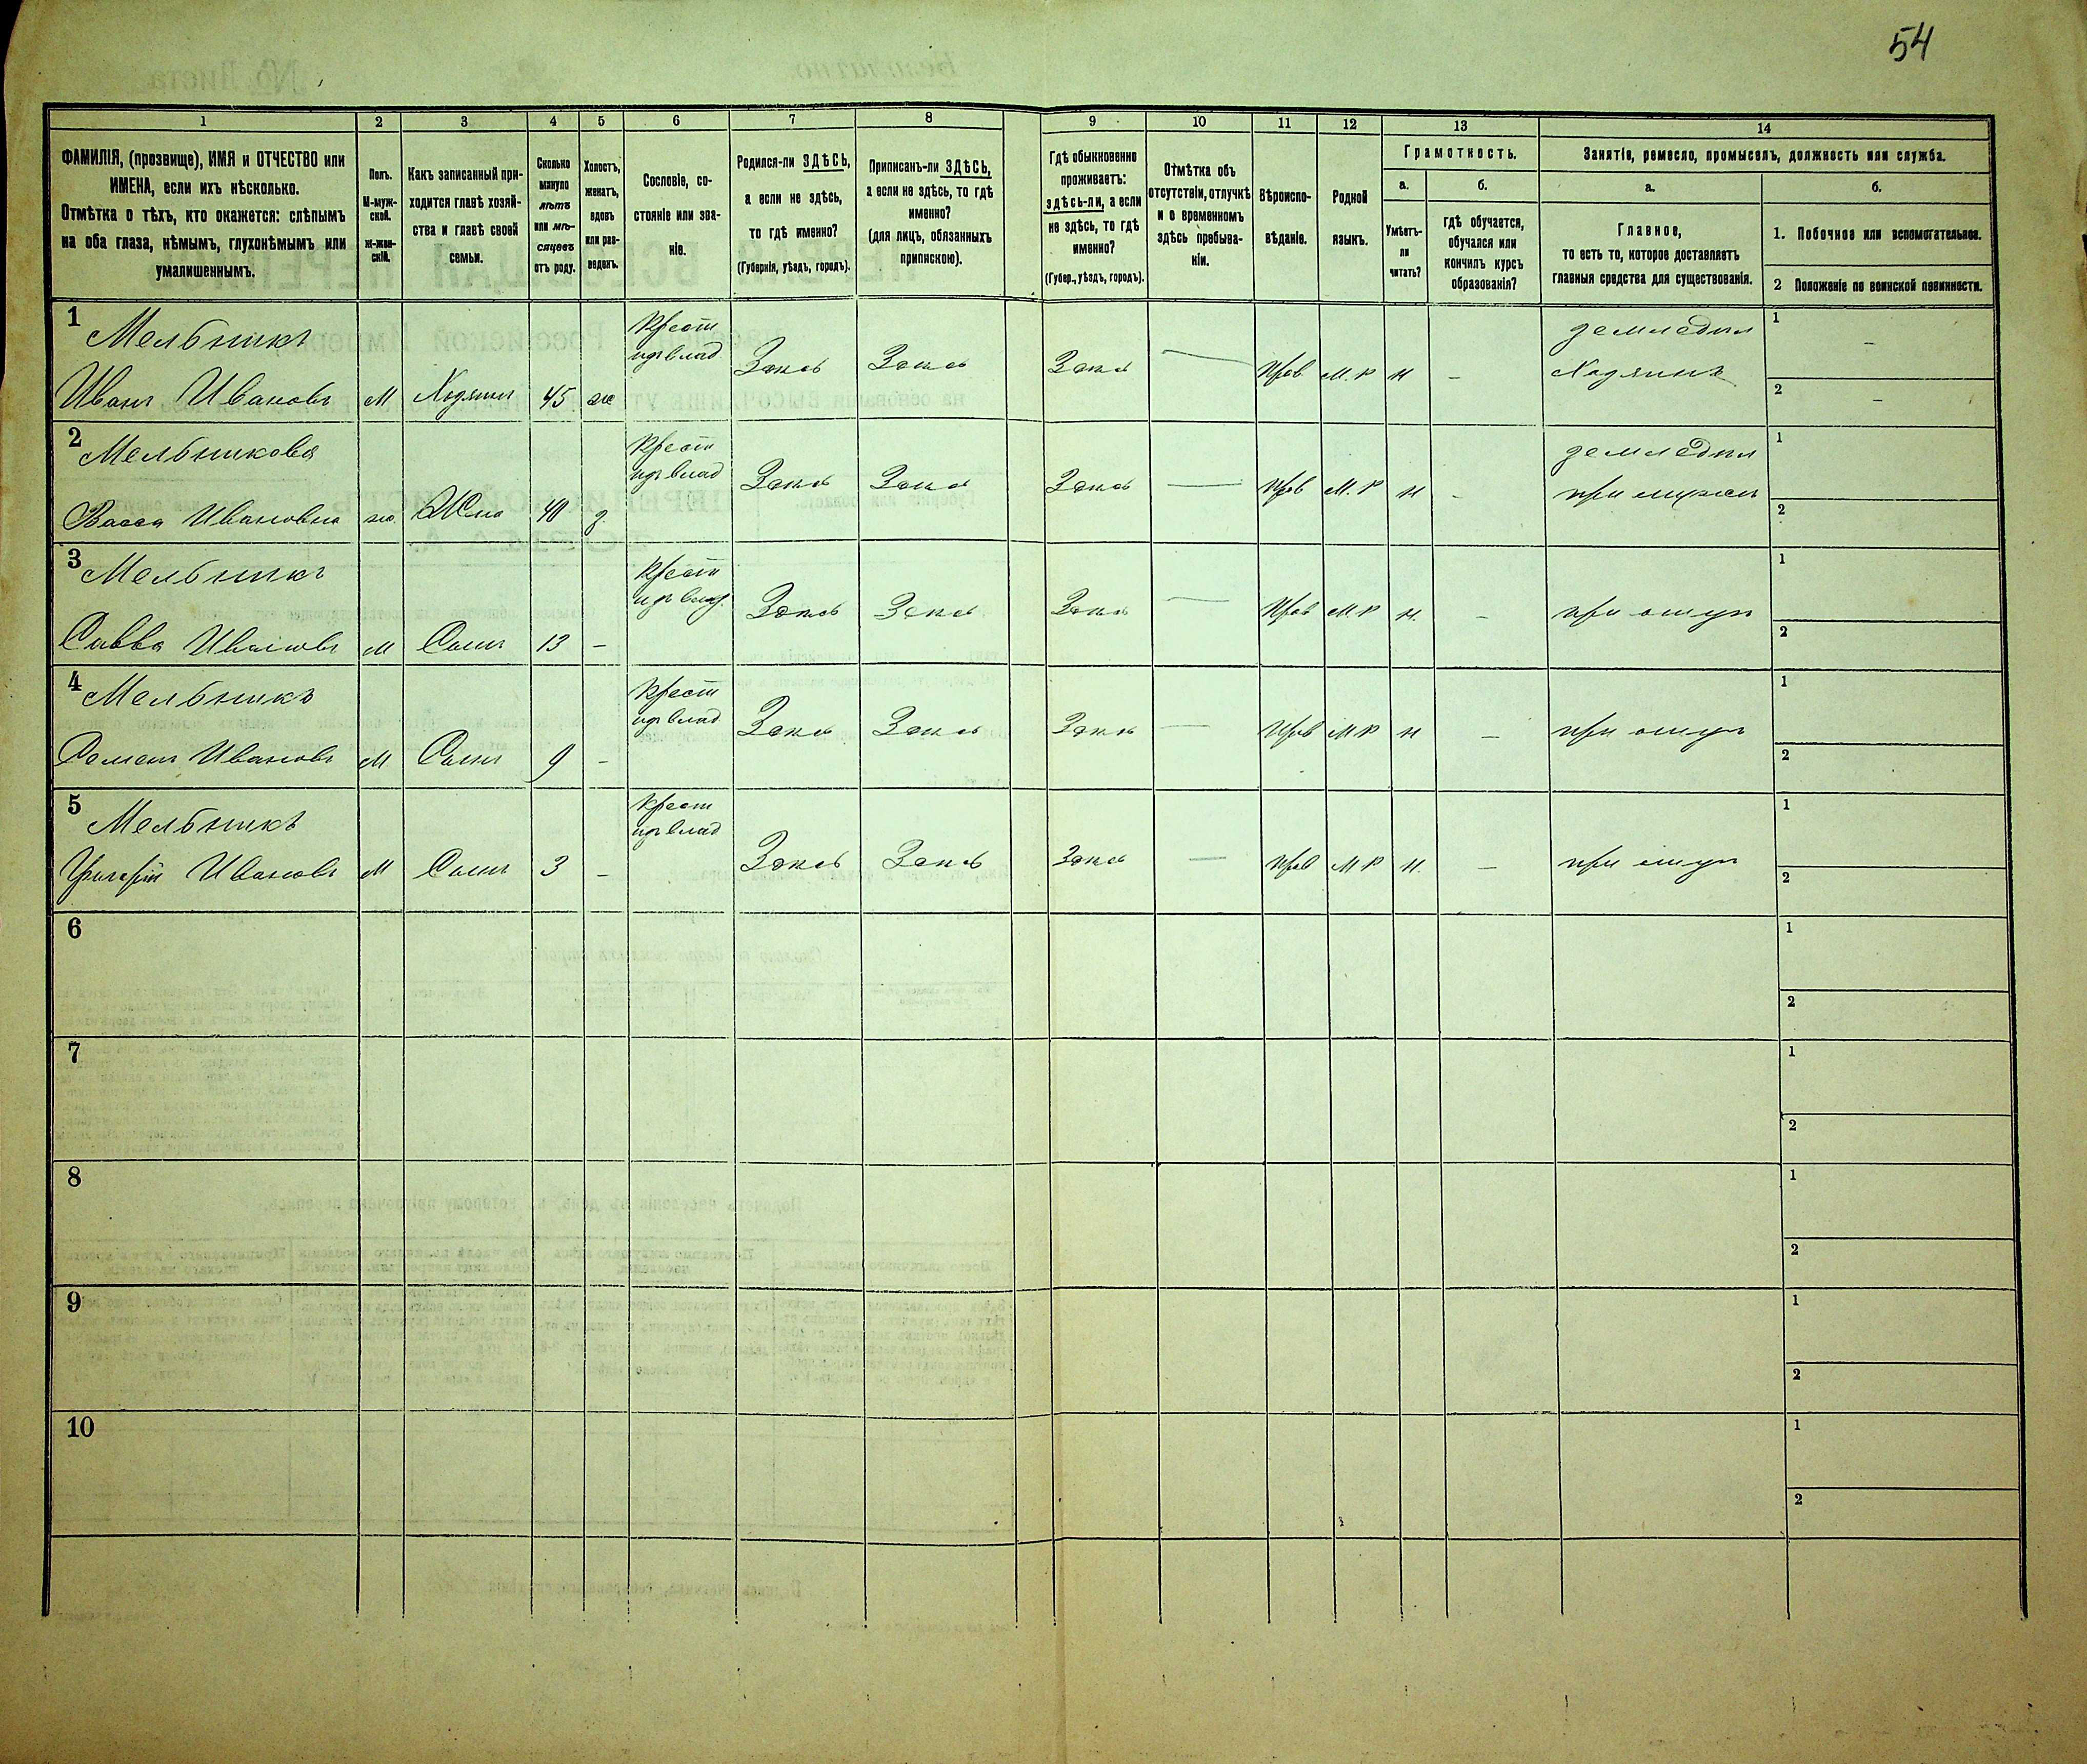 54
1
2
3
4
5
6
7
8
9
10
11
12
13
14
ФАМИЛІЯ, (прозвище), ИМЯ и ОТЧЕСТВО или
ИМЕНА, если ихъ нѣсколько.
Отмѣтка о тѣхъ, кто окажется: слѣпымъ
на оба глаза, нѣмымъ, глухонѣмымъ или
умалишеннымъ.
Полъ.
М-муж-
ской.
ж-жен-
скій.
Какъ записанный при-
ходится главѣ хозяй-
ства и главѣ своей
семьи.
Сколько
минуло
лѣтъ
или мѣ-
сяцевъ
отъ роду.
Холостъ,
женатъ,
вдовъ
или раз-
веденъ.
Сословіе, со-
стояніе или зва-
ніе.
Родился-ли ЗДѢСЬ,
а если не здѣсь,
то гдѣ именно?
(Губернія, уѣздъ, городъ).
Приписанъ-ли ЗДѢСЬ,
а если не здѣсь, то гдѣ
именно?
(для лицъ, обязанныхъ
припискою).
Гдѣ обыкновенно
проживаетъ:
здѣсь-ли, а если
не здѣсь, то гдѣ
именно?
(Губер., уѣздъ, городъ).
Отмѣтка объ
отсутствіи, отлучкѣ
и о временномъ
здѣсь пребыва-
ніи.
Вѣроиспо-
вѣданіе.
Родной
языкъ.
Грамотность.
а.
Умѣетъ-
ли
читать?
б.
гдѣ обучается,
обучался или
кончилъ курсъ
образованія?
Занятіе, ремесло, промыселъ, должность или служба.
а.
Главное,
то есть то, которое доставляетъ
главныя средства для существованія.
б.
1. Побочное или вспомогательное.
2 Положеніе по воинской повинности.
1
Мельникъ
Иванъ Ивановъ м Хозяинъ 45 ж
Крест
изъ влад
Здѣсь Здѣсь Здѣсь — Прав М.Р н —
земледѣл
Хозяинъ
1 —
2 —
2
Мельникова
Васса Ивановна ж. Жена 40 з.
Крест
изъ влад
Здѣсь Здѣсь Здѣсь — Прав М.Р н -
земледѣл
при мужѣ
1
2
3
Мельникъ
Савва Ивановъ м Сынъ 13 –
Крест
изъ влад.
Здѣсь Здѣсь Здѣсь — Прав М.Р н. – при отцѣ
1
2
4
Мельникъ
Ивановъ м Сынъ 9 –
Крест
изъ влад
Здѣсь Здѣсь Здѣсь — Прав М Р н – при отцѣ
1
2
5
Мельникъ
Григорій Ивановъ м Сынъ 3 –
Крест
изъ влад
Здѣсь Здѣсь Здѣсь — Прав М Р н. — при отцѣ
1
2
6
1
2
7
1
2
8
1
2
9
1
2
10
1
2